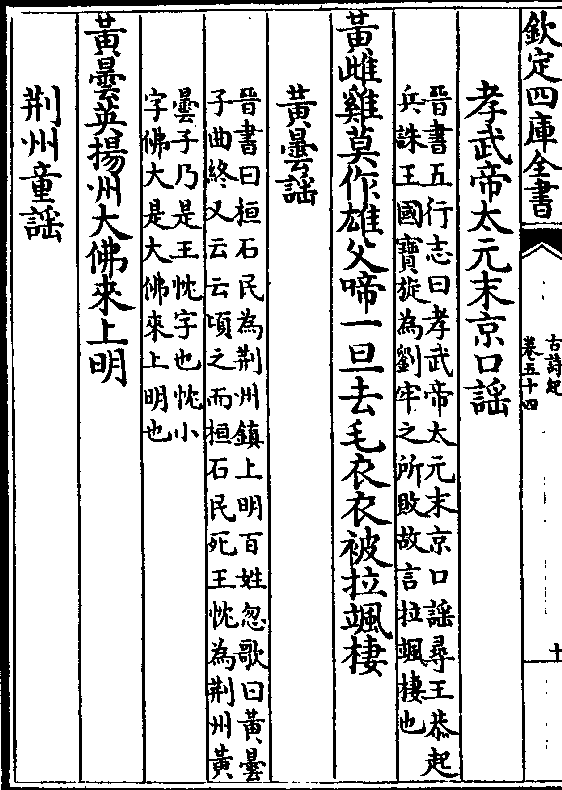 欽定四庫全書
古詩紀
卷五十四
十
孝武帝太元末京口謡
晉書五行志曰孝武帝太元末京口謡尋王恭起
兵誅王國寶旋為劉牢之所敗故言拉颯棲也
黃雌雞莫作雄父啼一旦去毛衣衣被拉颯棲
黃曇謡
晉書曰桓石民為荆州鎮上明百姓忽歌曰黃曇
子曲終又云云頃之而桓石民死王忱為荆州黃
曇子乃是王忱字也忱小
字佛大是大佛來上明也
黃曇英揚州大佛來上明
荆州童謡